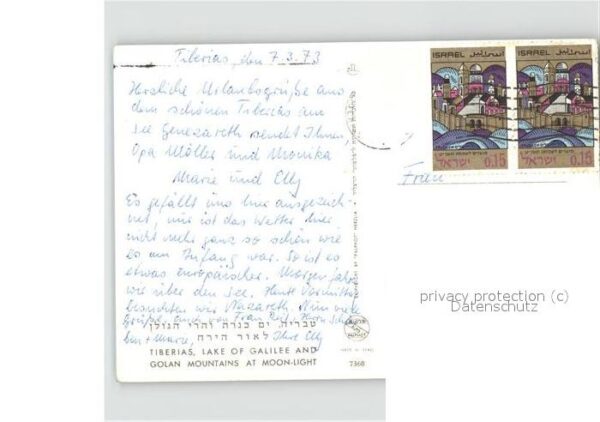 Tiberias, den 7.3.73
Herzliche Urlaubsgrüße aus
dem schönen Tiberias am
See Genezareth sendet Ihnen,
Opa Möller und Monika
Marie und Elly
Es gefällt uns hier ausgezeich
net, nur ist das Wetter hier
nicht mehr ganz so schön wie
es am Anfang war. So ist es
etwas europäischer. Morgen fahren
wir über den See. Heute Vormittag
besuchten wir Nazareth. Nun viele
Grüße auch von Frau
ben + Marie, Ihre Elly
טבריה, ים כנרת והרי הגולן
לאור הירח
TIBERIAS, LAKE OF GALILEE AND
GOLAN MOUNTAINS AT MOON-LIGHT
7368
ISRAEL اسرائيل
ישראל 0.15
ISRAEL اسرائيل
ישראל 0.15
Frau
privacy protection (c)
Datenschutz